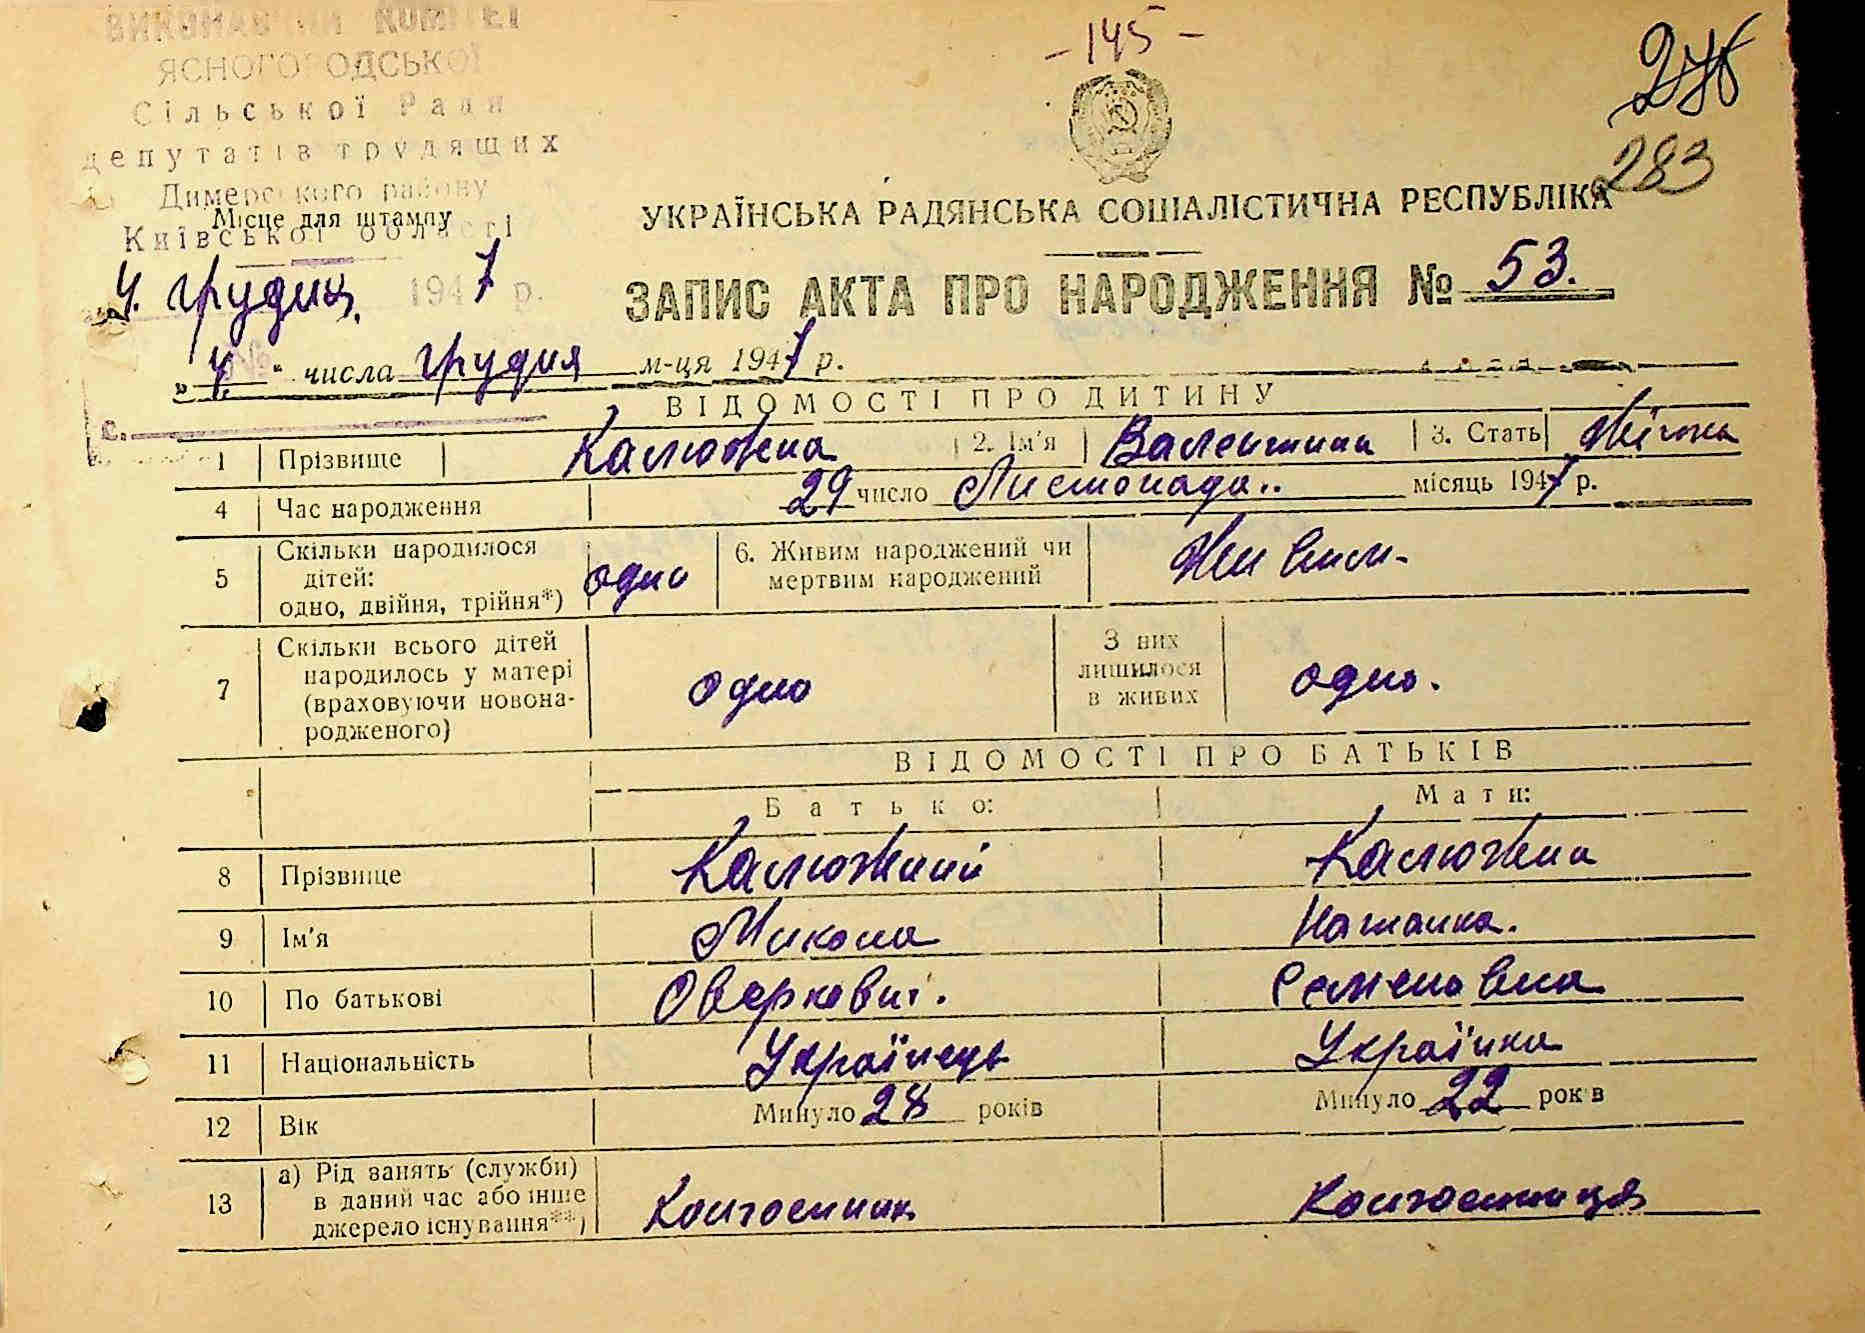 ВИКОНАВЧИЙ КОМІТЕТ
ЯСНОГОРОДСЬКОЇ
Сільської Ради
депутатів трудящих
Димерського району
Київської області
Місце для штампу
4. грудня. 1947 р.
№
с.
- 145 -
276
283
УКРАЇНСЬКА РАДЯНСЬКА СОЦІАЛІСТИЧНА РЕСПУБЛІКА
ЗАПИС АКТА ПРО НАРОДЖЕННЯ № 53.
„ 4. “ числа грудня м-ця 1947 р.
ВІДОМОСТІ ПРО ДИТИНУ
1 Прізвище Калюжна 2. Ім'я Валентина 3. Стать Жіноча
4 Час народження 29 число Листопада.. місяць 1947 р.
5 Скільки народилося дітей: одно, двійня, трійня*) одно 6. Живим народжений чи мертвим народжений Живим-
7 Скільки всього дітей народилось у матері (враховуючи новона-родженого) одно З них лишилося в живих одно.
ВІДОМОСТІ ПРО БАТЬКІВ
Батько: Мати:
8 Прізвище Калюжний Калюжна
9 Ім'я Микола Наталка.
10 По батькові Оверкович. Семеновна
11 Національність Українець Українка
12 Вік Минуло 28 років Минуло 22 років
13 а) Рід занять (служби) в даний час або інше джерело існування**) Колгоспник Колгоспниця